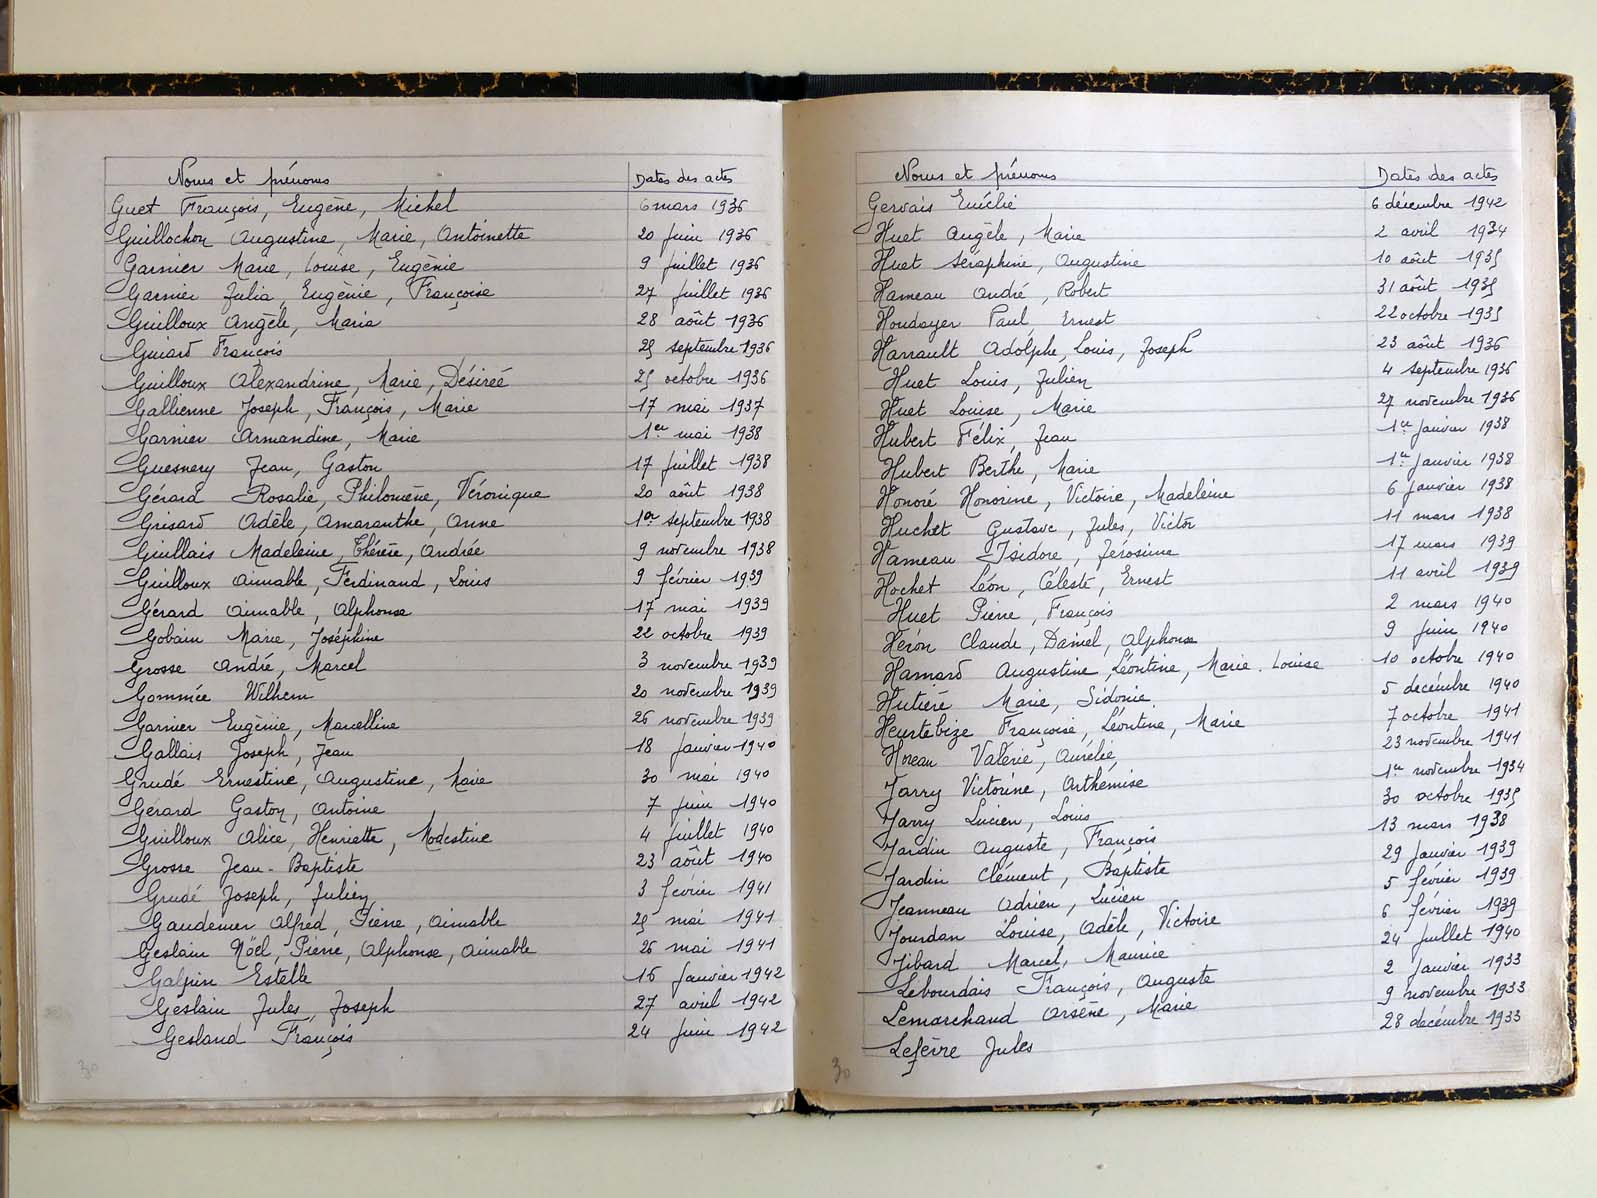 Noms et prénoms Dates des actes
Guet François, Eugène, Michel 6 mars 1936
Guillochon Augustine, Marie, Antoinette 20 juin 1936
Garnier Marie, Louise, Eugènie 9 juillet 1936
Garnier Julia, Eugènie, Françoise 27 juillet 1936
Guilloux Angèle, Maria 28 août 1936
Guiard François 25 septembre 1936
Guilloux Alexandrine, Marie, Désireé 25 octobre 1936
Gallienne Joseph, François, Marie 17 mai 1937
Garnier Armandine, Marie 1er mai 1938
Guesnery Jean, Gaston 17 juillet 1938
Gérard Rosalie, Philomène, Véronique 20 août 1938
Grisard Adèle, Amaranthe, Anne 1er septembre 1938
Guillais Madeleine, Thérèse, Andrée 9 novembre 1938
Guilloux Aimable, Ferdinand, Louis 9 février 1939
Gérard Aimable, Alphonse 17 mai 1939
Gobain Marie, Joséphine 22 octobre 1939
Grosse André, Marcel 3 novembre 1939
Gommée Wilhem 20 novembre 1939
Garnier Eugènie, Marcelline 26 novembre 1939
Gallais Joseph, Jean 18 janvier 1940
Grudé Ernestine, Augustine, Marie 30 mai 1940
Gérard Gaston, Antoine 7 juin 1940
Guilloux Alice, Henriette, Modestine 4 juillet 1940
Grosse Jean-Baptiste 23 août 1940
Grudé Joseph, Julien 3 février 1941
Gaudemer Alfred, Pierre, Aimable 25 mai 1941
Geslain Nöel, Pierre, Alphonse, Aimable 26 mai 1941
Galpin Estelle 16 janvier 1942
Geslain Jules, Joseph 27 avril 1942
Gesland François 24 juin 1942
30
Noms et prénoms Dates des actes
Gervais Emélie 6 décembre 1942
Huet Angèle, Marie 2 avril 1934
Huet Séraphine, Augustine 10 août 1935
Hameau André, Robert 31 août 1935
Houdayer Paul, Ernest 22 octobre 1935
Harrault Adolphe, Louis, Joseph 23 août 1936
Huet Louis, Julien 4 septembre 1936
Huet Louise, Marie 27 novembre 1936
Hubert Félix, Jean 1er janvier 1938
Hubert Berthe, Marie 1er janvier 1938
Honoré Honorine, Victoire, Madeleine 6 janvier 1938
Huchet Gustave, Jules, Victor 11 mars 1938
Hameau Isidore, Jerosime 17 mars 1939
Hochet Léon, Céleste, Ernest 11 avril 1939
Huet Pierre, François 2 mars 1940
Héron Claude, Daniel, Alphonse 9 juin 1940
Hamard Augustine, Léontine, Marie-Louise 10 octobre 1940
Hutière Marie, Sidonie 5 decémbre 1940
Heurtebize Françoise, Léontine, Marie 7 octobre 1941
Horeau Valérie, Aurélie 23 novembre 1941
Jarry Victorine, Arthémise 1er novembre 1934
Jarry Lucien, Louis 30 octobre 1935
Jardin Auguste, François 13 mars 1938
Jardin Clément, Baptiste 29 janvier 1939
Jeanneau Adrien, Lucien 5 février 1939
Jourdan Louise, Adèle, Victoire 6 février 1939
Jibard Marcel, Maurice 24 juillet 1940
Lebourdais François, Auguste 2 janvier 1933
Lemarchand Arsène, Marie 9 novembre 1933
Lefèvre Jules 28 decémbre 1933
30